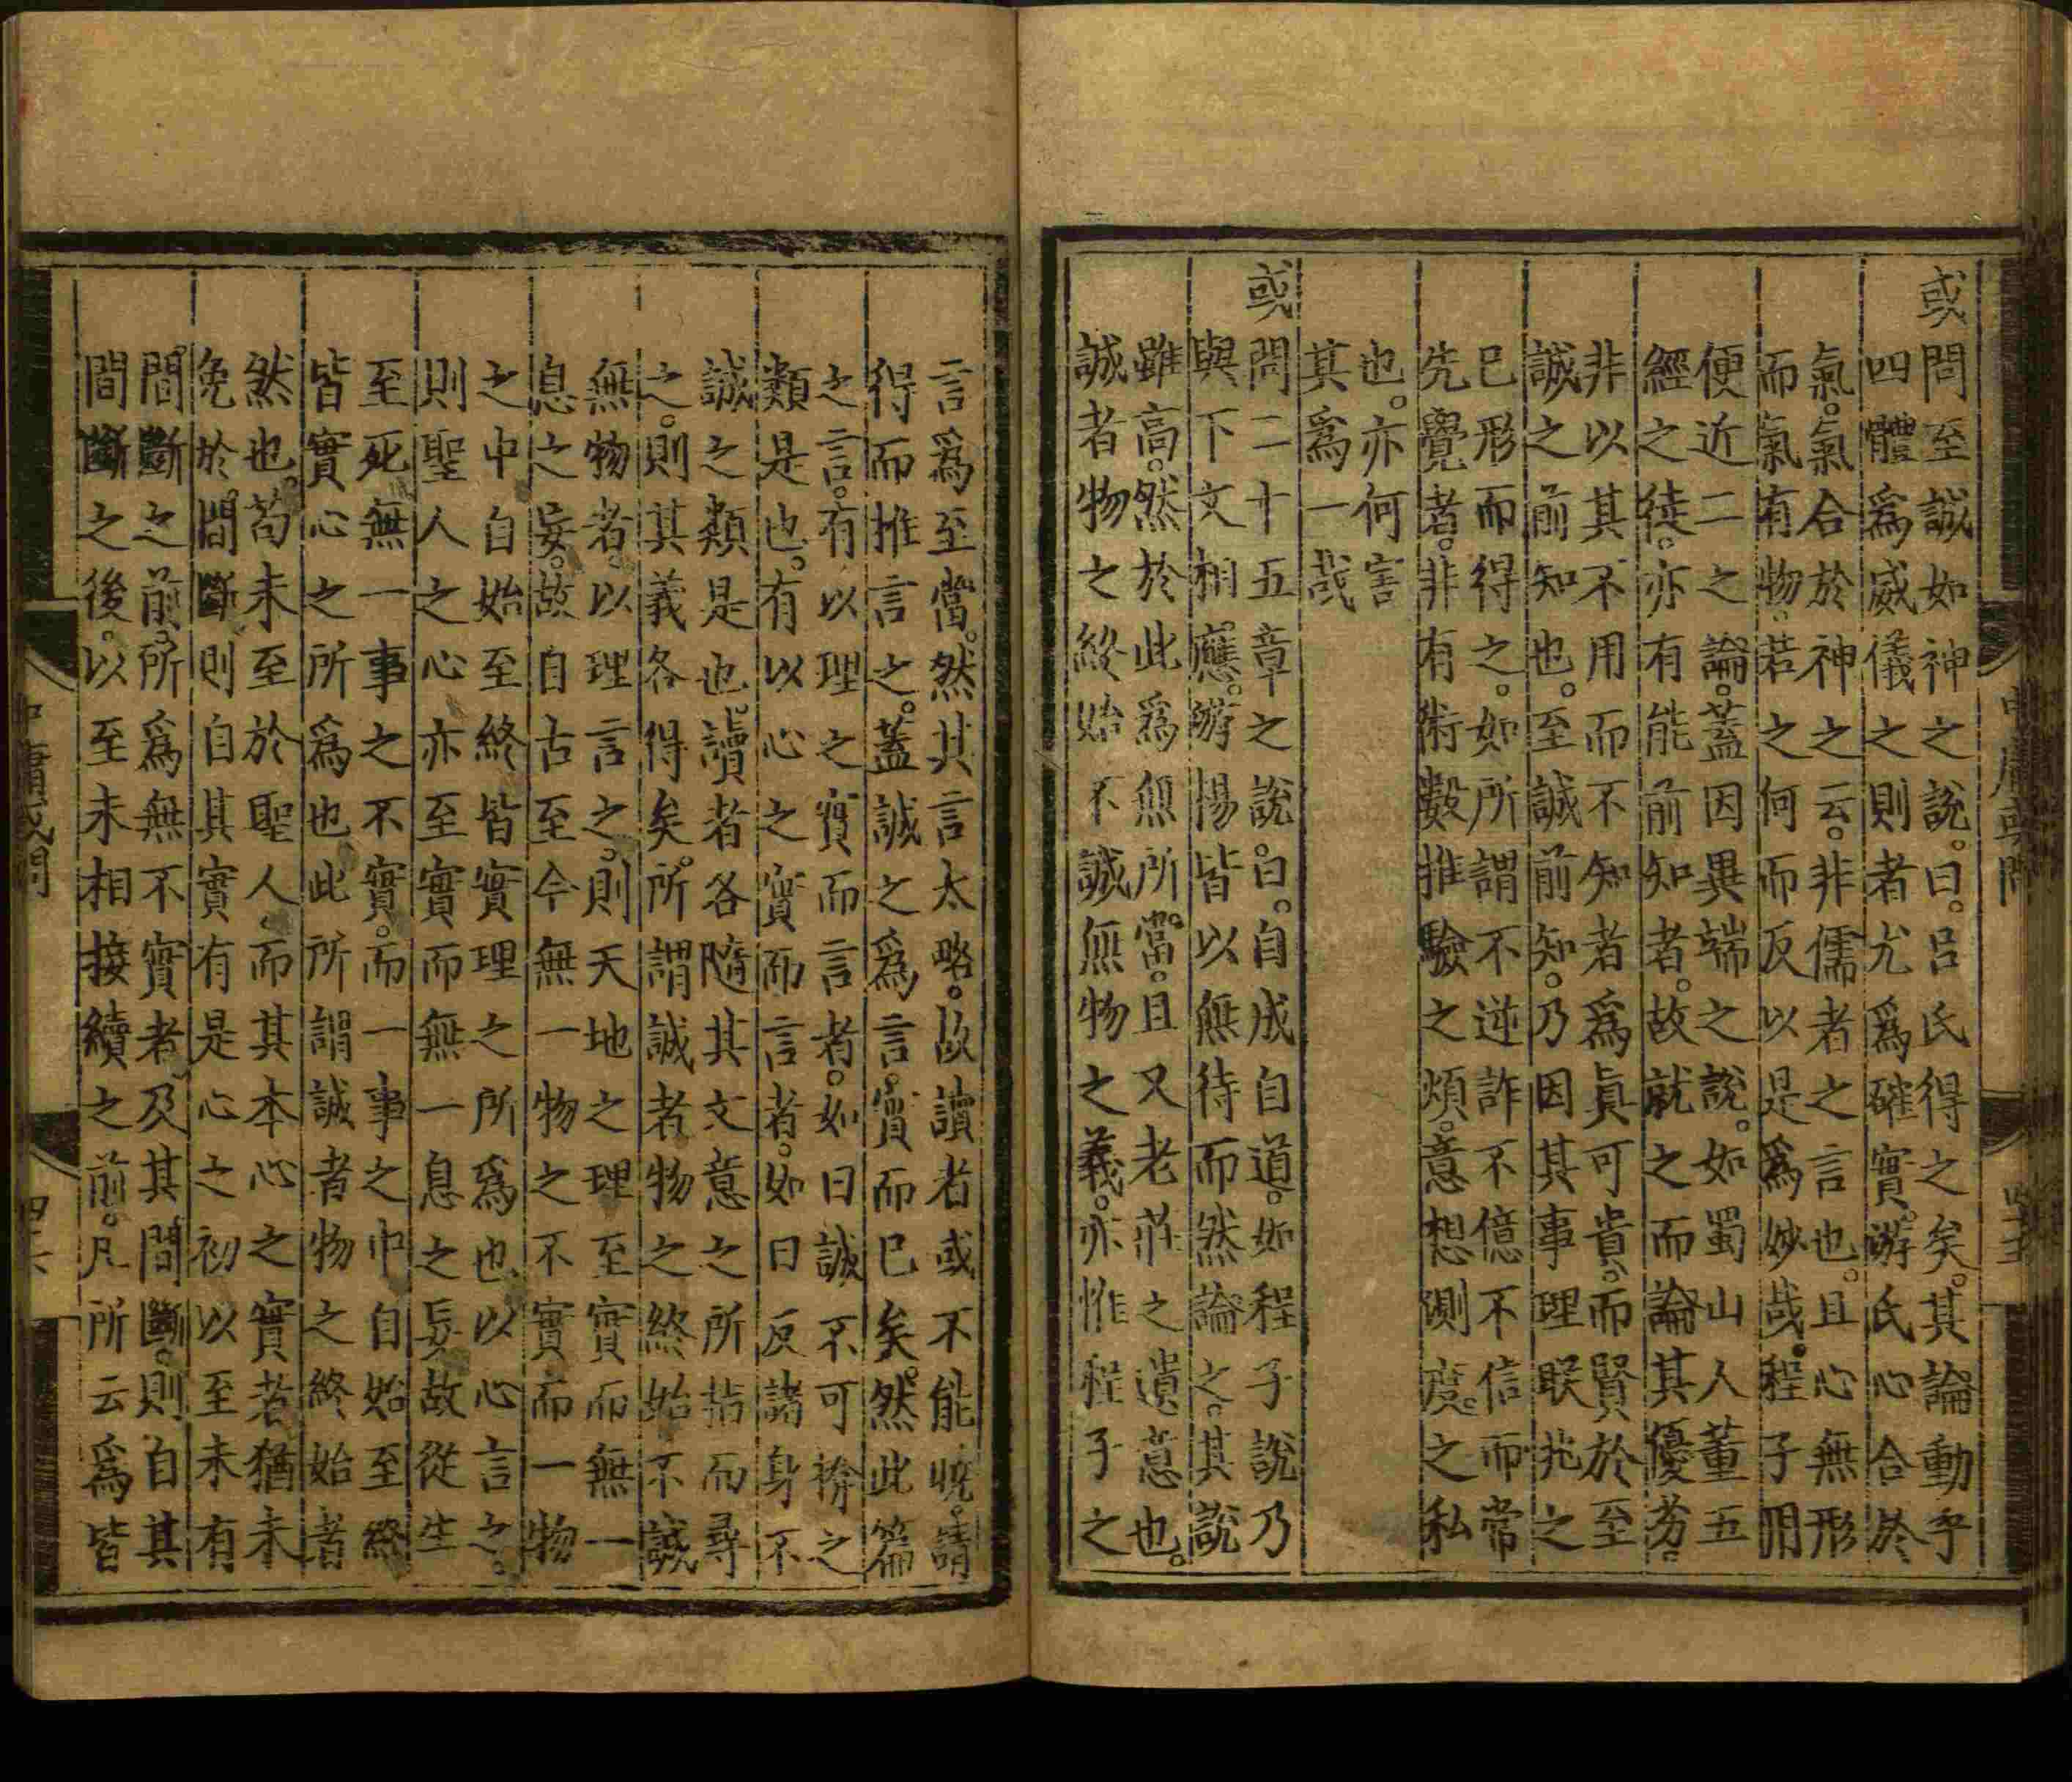 或問至誠如神之說。曰。呂氏得之矣。其論動乎
四體爲威儀之則者尤爲確實。游氏心合於
氣。氣合於神之云。非儒者之言也。且心無形
而氣有物。若之何而反以是爲妙哉。程子用
便近二之論。蓋因異端之說。如蜀山人董五
經之徒。亦有能前知者。故就之而論其優劣。
非以其不用而不知者爲眞可貴。而賢於至
誠之前知也。至誠前知。乃因其事理朕兆之
已形而得之。如所謂不逆詐不億不信而常
先覺者。非有術數推驗之煩。意想測度。之私
也。亦何害
其爲一哉
或問二十五章之說。曰。自成自道。如程子說乃
與下文相應。游楊皆以無待而然論之。其說
雖高。然於此爲無所當。且又老莊之遺意也。
誠者物之終始不誠無物之義。亦惟程子之
中庸或問
言爲至當。然其言太略。故讀者或不能曉。請
得而推言之。蓋誠之爲言。實而已矣。然此篇
之言。有以理之實而言者。如曰誠不可揜之
類是也。有以心之實而言者。如曰反諸身不
誠之類是也。讀者各隨其文意之所指而尋
之。則其義各得矣。所謂誠者物之終始不誠
無物者。以理言之。則天地之理至實而無一
息之妄。故自古至今無一物之不實而一物
之中自始至終皆實理之所爲也以心言之。
則聖人之心亦至實而無一息之妄故從生
至死無一事之不實。而一事之中自始至終
皆實心之所爲也此所謂誠者物之終始者
然也。苟未至於聖人。而其本心之實者猶未
免於間斷則自其實有是心之初以至未有
間斷之前。所爲無不實者及其間斷。則自其
間斷之後。以至未相接續之前。凡所云爲皆
中庸或問